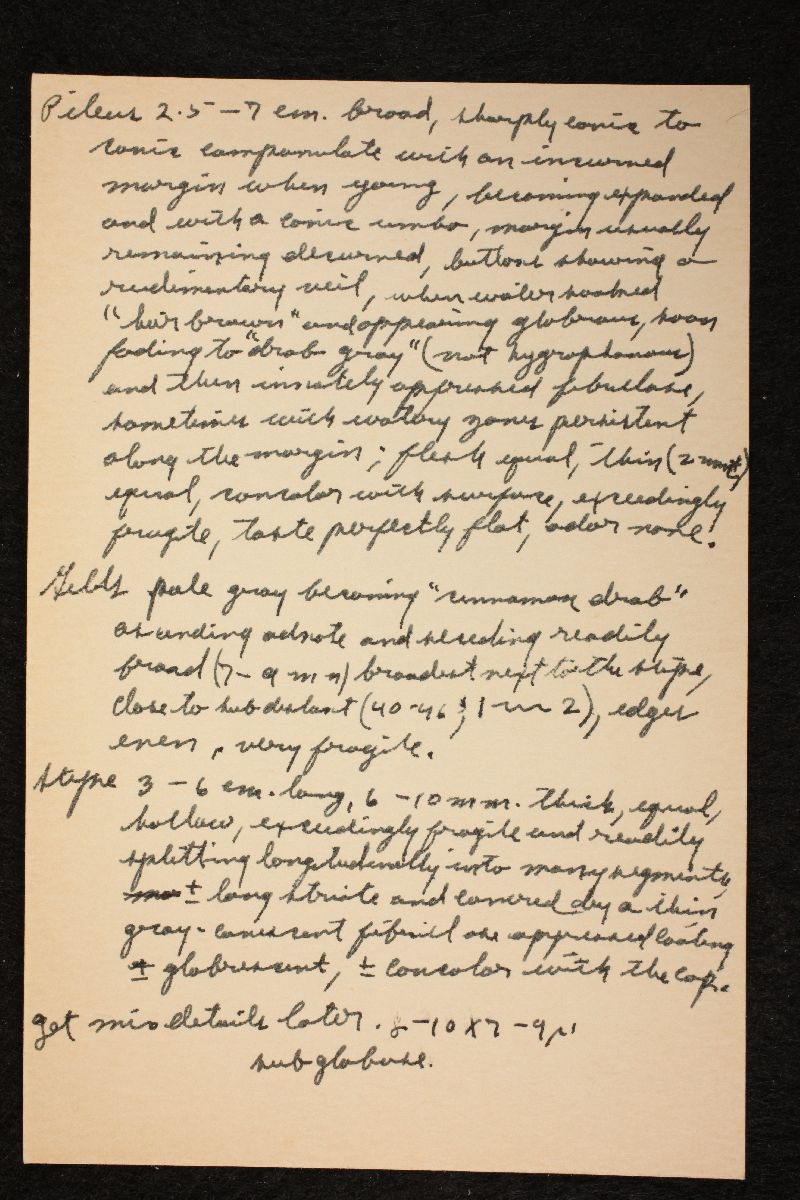 Pileus 2.5 – 7 cm. broad, sharply conic to
conic campanulate with an incurved
margin when young, becoming expanded
and with a conic umbo, margin usually
remaining decurved, buttons showing a
rudimentary veil, when water soaked
"hair brown" and appearing glabrous, soon
fading to "drab gray" (not hygrophanous)
and then innately appressed fibrillose,
sometimes with watery zones persistent
along the margin; flesh equal, thin (2 mm±)
equal, concolor with surface, exceedingly
fragile, taste perfectly flat, odor none.
Gills pale gray becoming "cinnamon drab"
ascending adnate and seceding readily
broad (7 – 9 mm) broadest next to the stipe,
close to subdistant (40-46; 1 – 2), edges
even, very fragile.
Stipe 3 – 6 cm. long, 6 – 10 mm. thick, equal,
hollow, exceedingly fragile and readily
splitting longitudinally into many segments,
± long striate and covered by a thin
gray-canescent fibrillose appressed coating
± glabrescent, ± concolor with the cap.
get mic details later. 8 – 10 X 7 – 9 μ
subglobose.